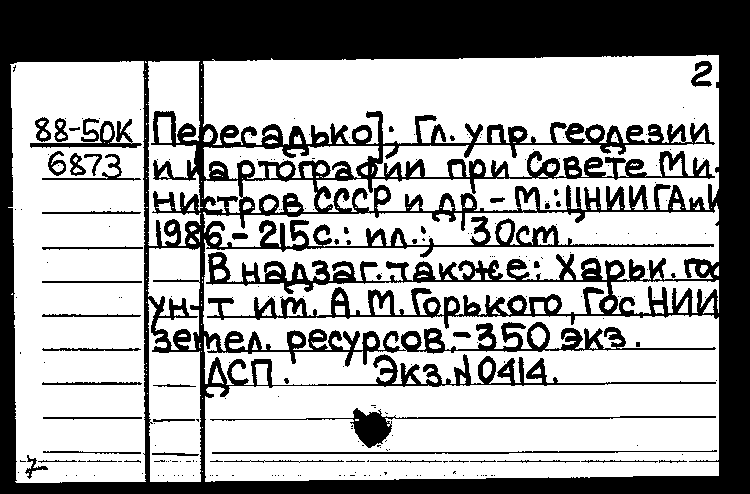 2.
88-50К Пересадько]; Гл. упр. геодезии
6873 и картографии при Совете Ми-
нистров СССР и др. - М.: ЦНИИГАиК
1986.- 215с.: ил.; 30см.
В надзаг. также: Харьк. гос
ун-т им. А.М.Горького, Гос. НИИ
земел. ресурсов.- 350 экз.
ДСП. Экз.N0414.
7-